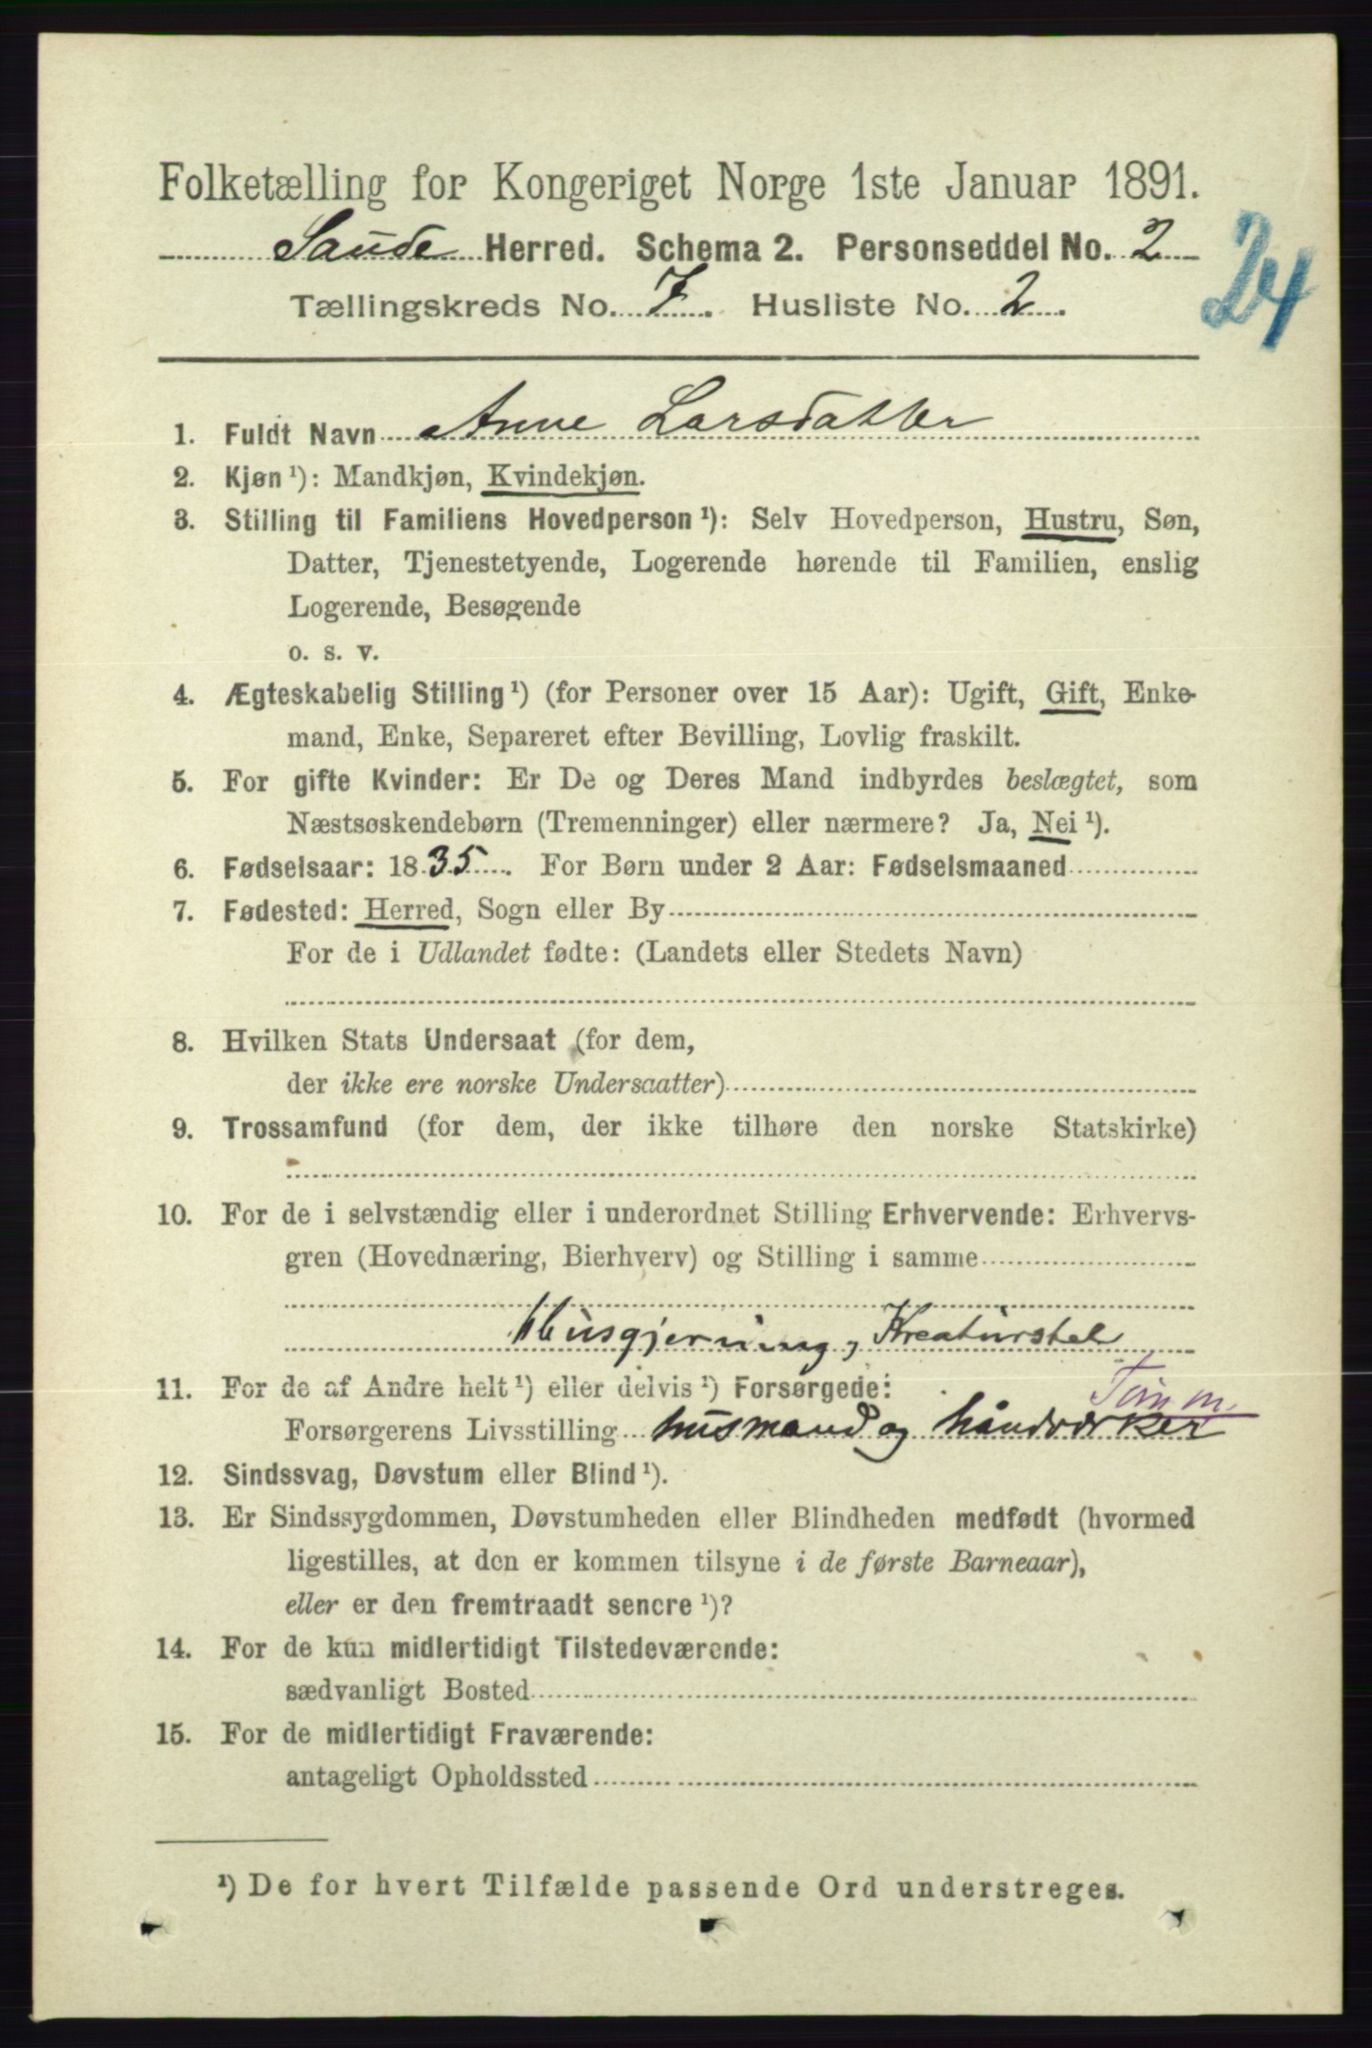 Folketælling for Kongeriget Norge 1ste Januar 1891.
Saude Herred. Schema 2. Personseddel No. 2
24
Tællingskreds No. 7. Husliste No. 2.
1. Fuldt Navn Anne Larsdatter
2. Kjøn ¹): Mandkjøn, Kvindekjøn.
3. Stilling til Familiens Hovedperson ¹): Selv Hovedperson, Hustru, Søn,
Datter, Tjenestetyende, Logerende hørende til Familien, enslig
Logerende, Besøgende
o. s. v.
4. Ægteskabelig Stilling ¹) (for Personer over 15 Aar): Ugift, Gift, Enke-
mand, Enke, Separeret efter Bevilling, Lovlig fraskilt.
5. For gifte Kvinder: Er De og Deres Mand indbyrdes beslægtet, som
Næstsøskendebørn (Tremenninger) eller nærmere? Ja, Nei ¹).
6. Fødselsaar: 1835. For Børn under 2 Aar: Fødselsmaaned
7. Fødested: Herred, Sogn eller By
For de i Udlandet fødte: (Landets eller Stedets Navn)
8. Hvilken Stats Undersaat (for dem,
der ikke ere norske Undersaatter)
9. Trossamfund (for dem, der ikke tilhøre den norske Statskirke)
10. For de i selvstændig eller i underordnet Stilling Erhvervende: Erhvervs-
gren (Hovednæring, Bierhverv) og Stilling i samme
Husgjerning, Kreaturstel
11. For de af Andre helt ¹) eller delvis ¹) Forsørgede:
Tømm.
Forsørgerens Livsstilling husmand og håndværker
12. Sindssvag, Døvstum eller Blind ¹).
13. Er Sindssygdommen, Døvstumheden eller Blindheden medfødt (hvormed
ligestilles, at den er kommen tilsyne i de første Barneaar),
eller er den fremtraadt sencre ¹)?
14. For de kun midlertidigt Tilstedeværende:
sædvanligt Bosted
15. For de midlertidigt Fraværende:
antageligt Opholdssted
¹) De for hvert Tilfælde passende Ord understreges.